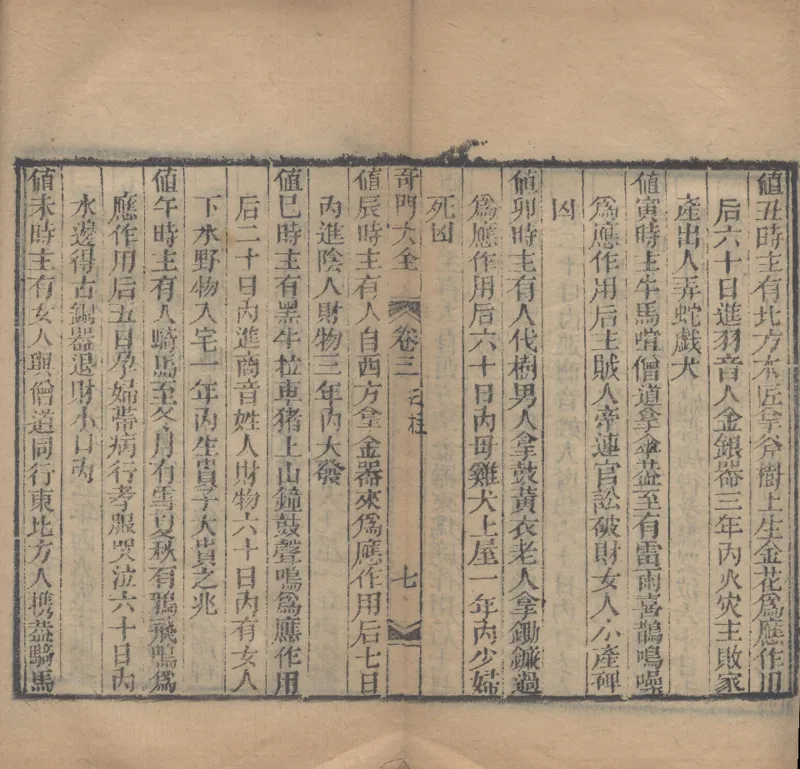 值丑時主有北方木匠拿斧樹上生金花為應作用
后六十日進羽音人金銀器三年內火灾主敗家
產出人弄蛇戲犬
值寅時主牛馬
僧道拿傘葢至有雷雨喜鵲鳴噪
為應作用后主賊人帝連官訟破財女人小產碑
凶
值卯時主有人伐樹男人拿鼓黃衣老人拿鋤鐮過
為應作用后六十日內母雞犬上屋一年內少婦
死凶
奇門大全
卷三
七
值辰時主有人自西方拿金器來為應作用后七日
內進陰人財物三年內大發
值巳時主有黑牛拉車猪上山鐘鼓聲鳴為應作用
后二十日內進商音姓人財物六十日內有女人
下水野物入宅一年內生貴子大貴之兆
值午時主有人騎馬至冬月有雪夏秋有鴉飛鳴為
應作用后五日孕婦帶病行孝服哭泣六十日內
水邊得古銅器退財小口凶
值未時主有女人與僧道同行東北方人携葢騎馬